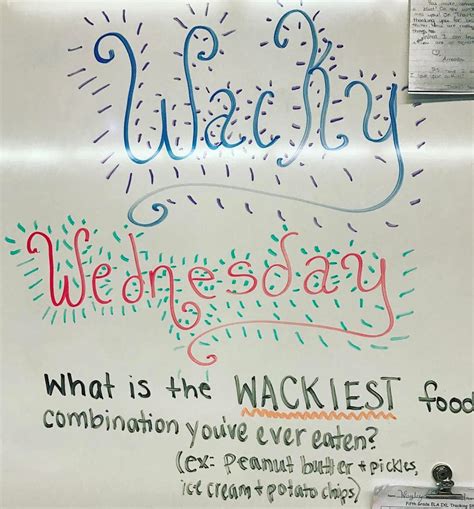 Wacky
Wednesday
What is the WACKIEST food
combination you've ever eaten?
(ex: Peanut butter + pickles,
ice cream + potato chips)
Fifth Grade ELA IXL Tracking